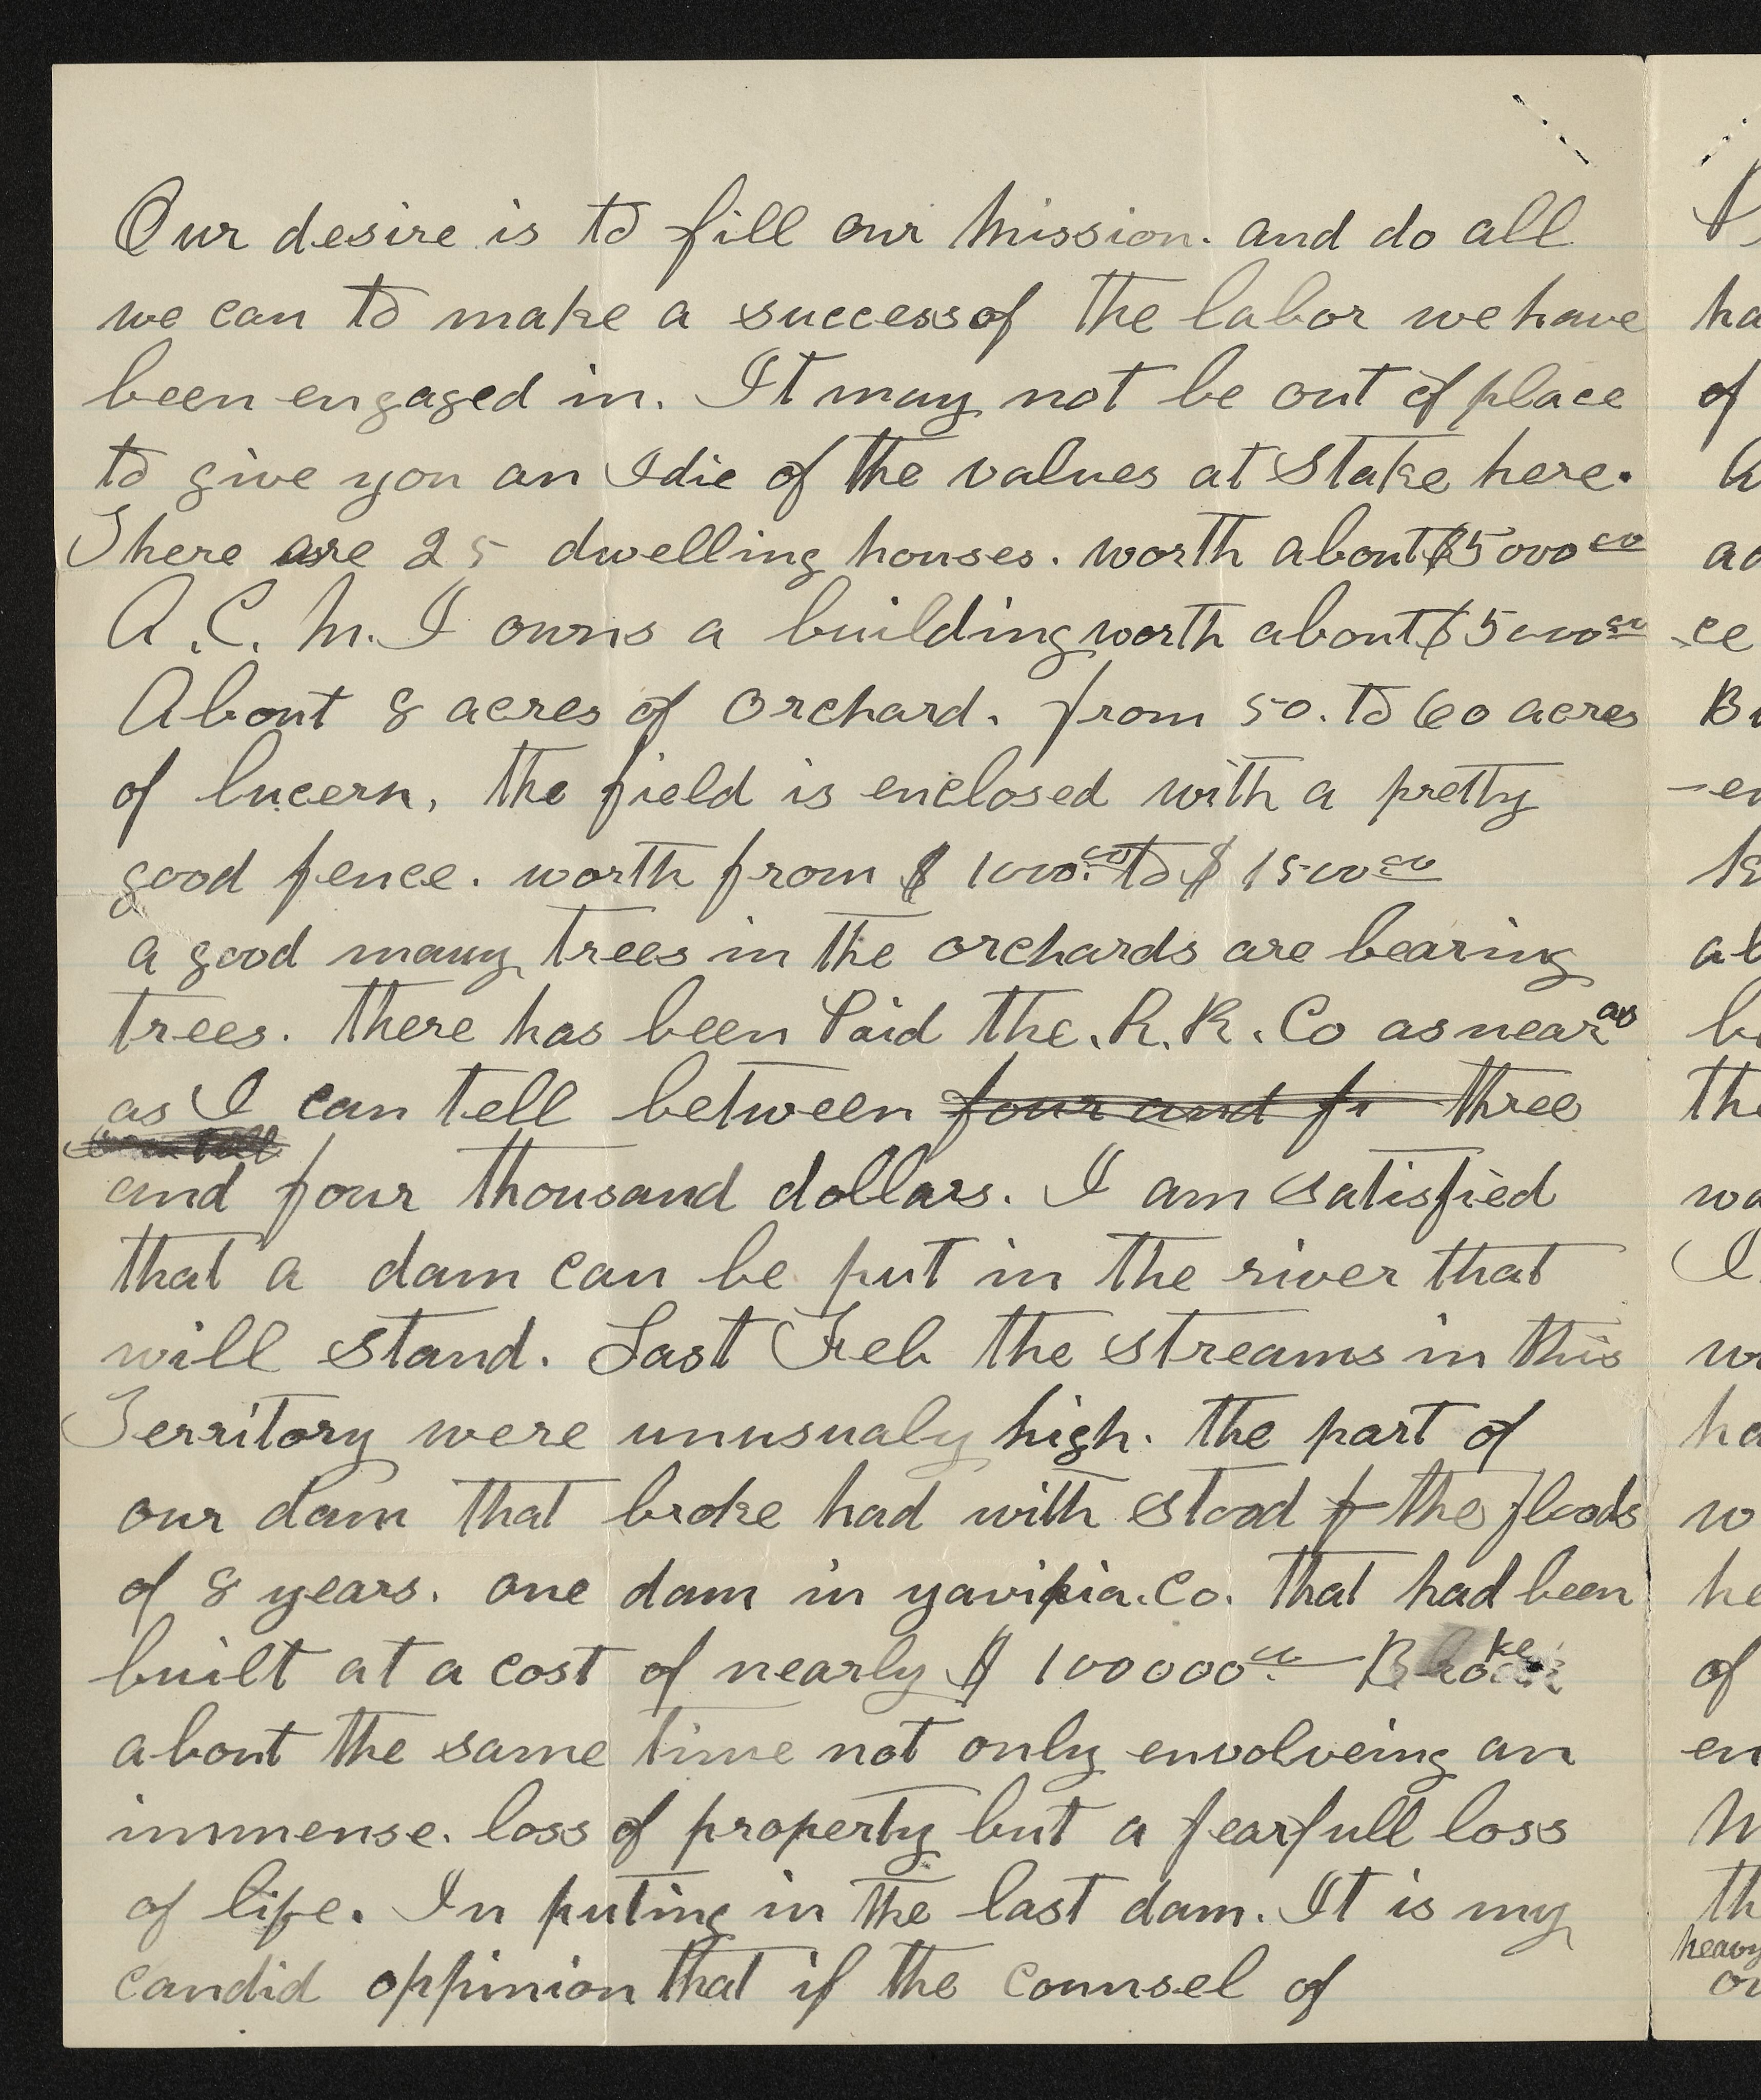 Our desire is to fill our mission. and do all
we can to make a success of the labor we have
been engaged in. It may not be out of place
to give you an Idie of the values at Stake here.
There are 25 dwelling houses. worth about $5000 00
A.C.M.I owns a building worth about $5000 00
About 8 acres of Orchard. from 50. to 60 acres
of lucern, the field is enclosed with a pretty
good fence. worth from $1000.00 to $1500 00
a good many trees in the orchards are bearing
trees. there has been Paid the. R.R. Co as near as
as I can tell between four and fi three
and four thousand dollars. I am satisfied
that a dam can be put in the river that
will stand. Last Feb the streams in this
Territory were unusualy high. the part of
our dam that broke had with stood f the floods
of 8 years. one dam in yavipia. Co. that had been
built at a cost of nearly $100000 00 Broke
about the same time not only envolveing an
immense. loss of property but a fearfull loss
of life. In puting in the last dam. It is my
candid oppinion that if the counsel of